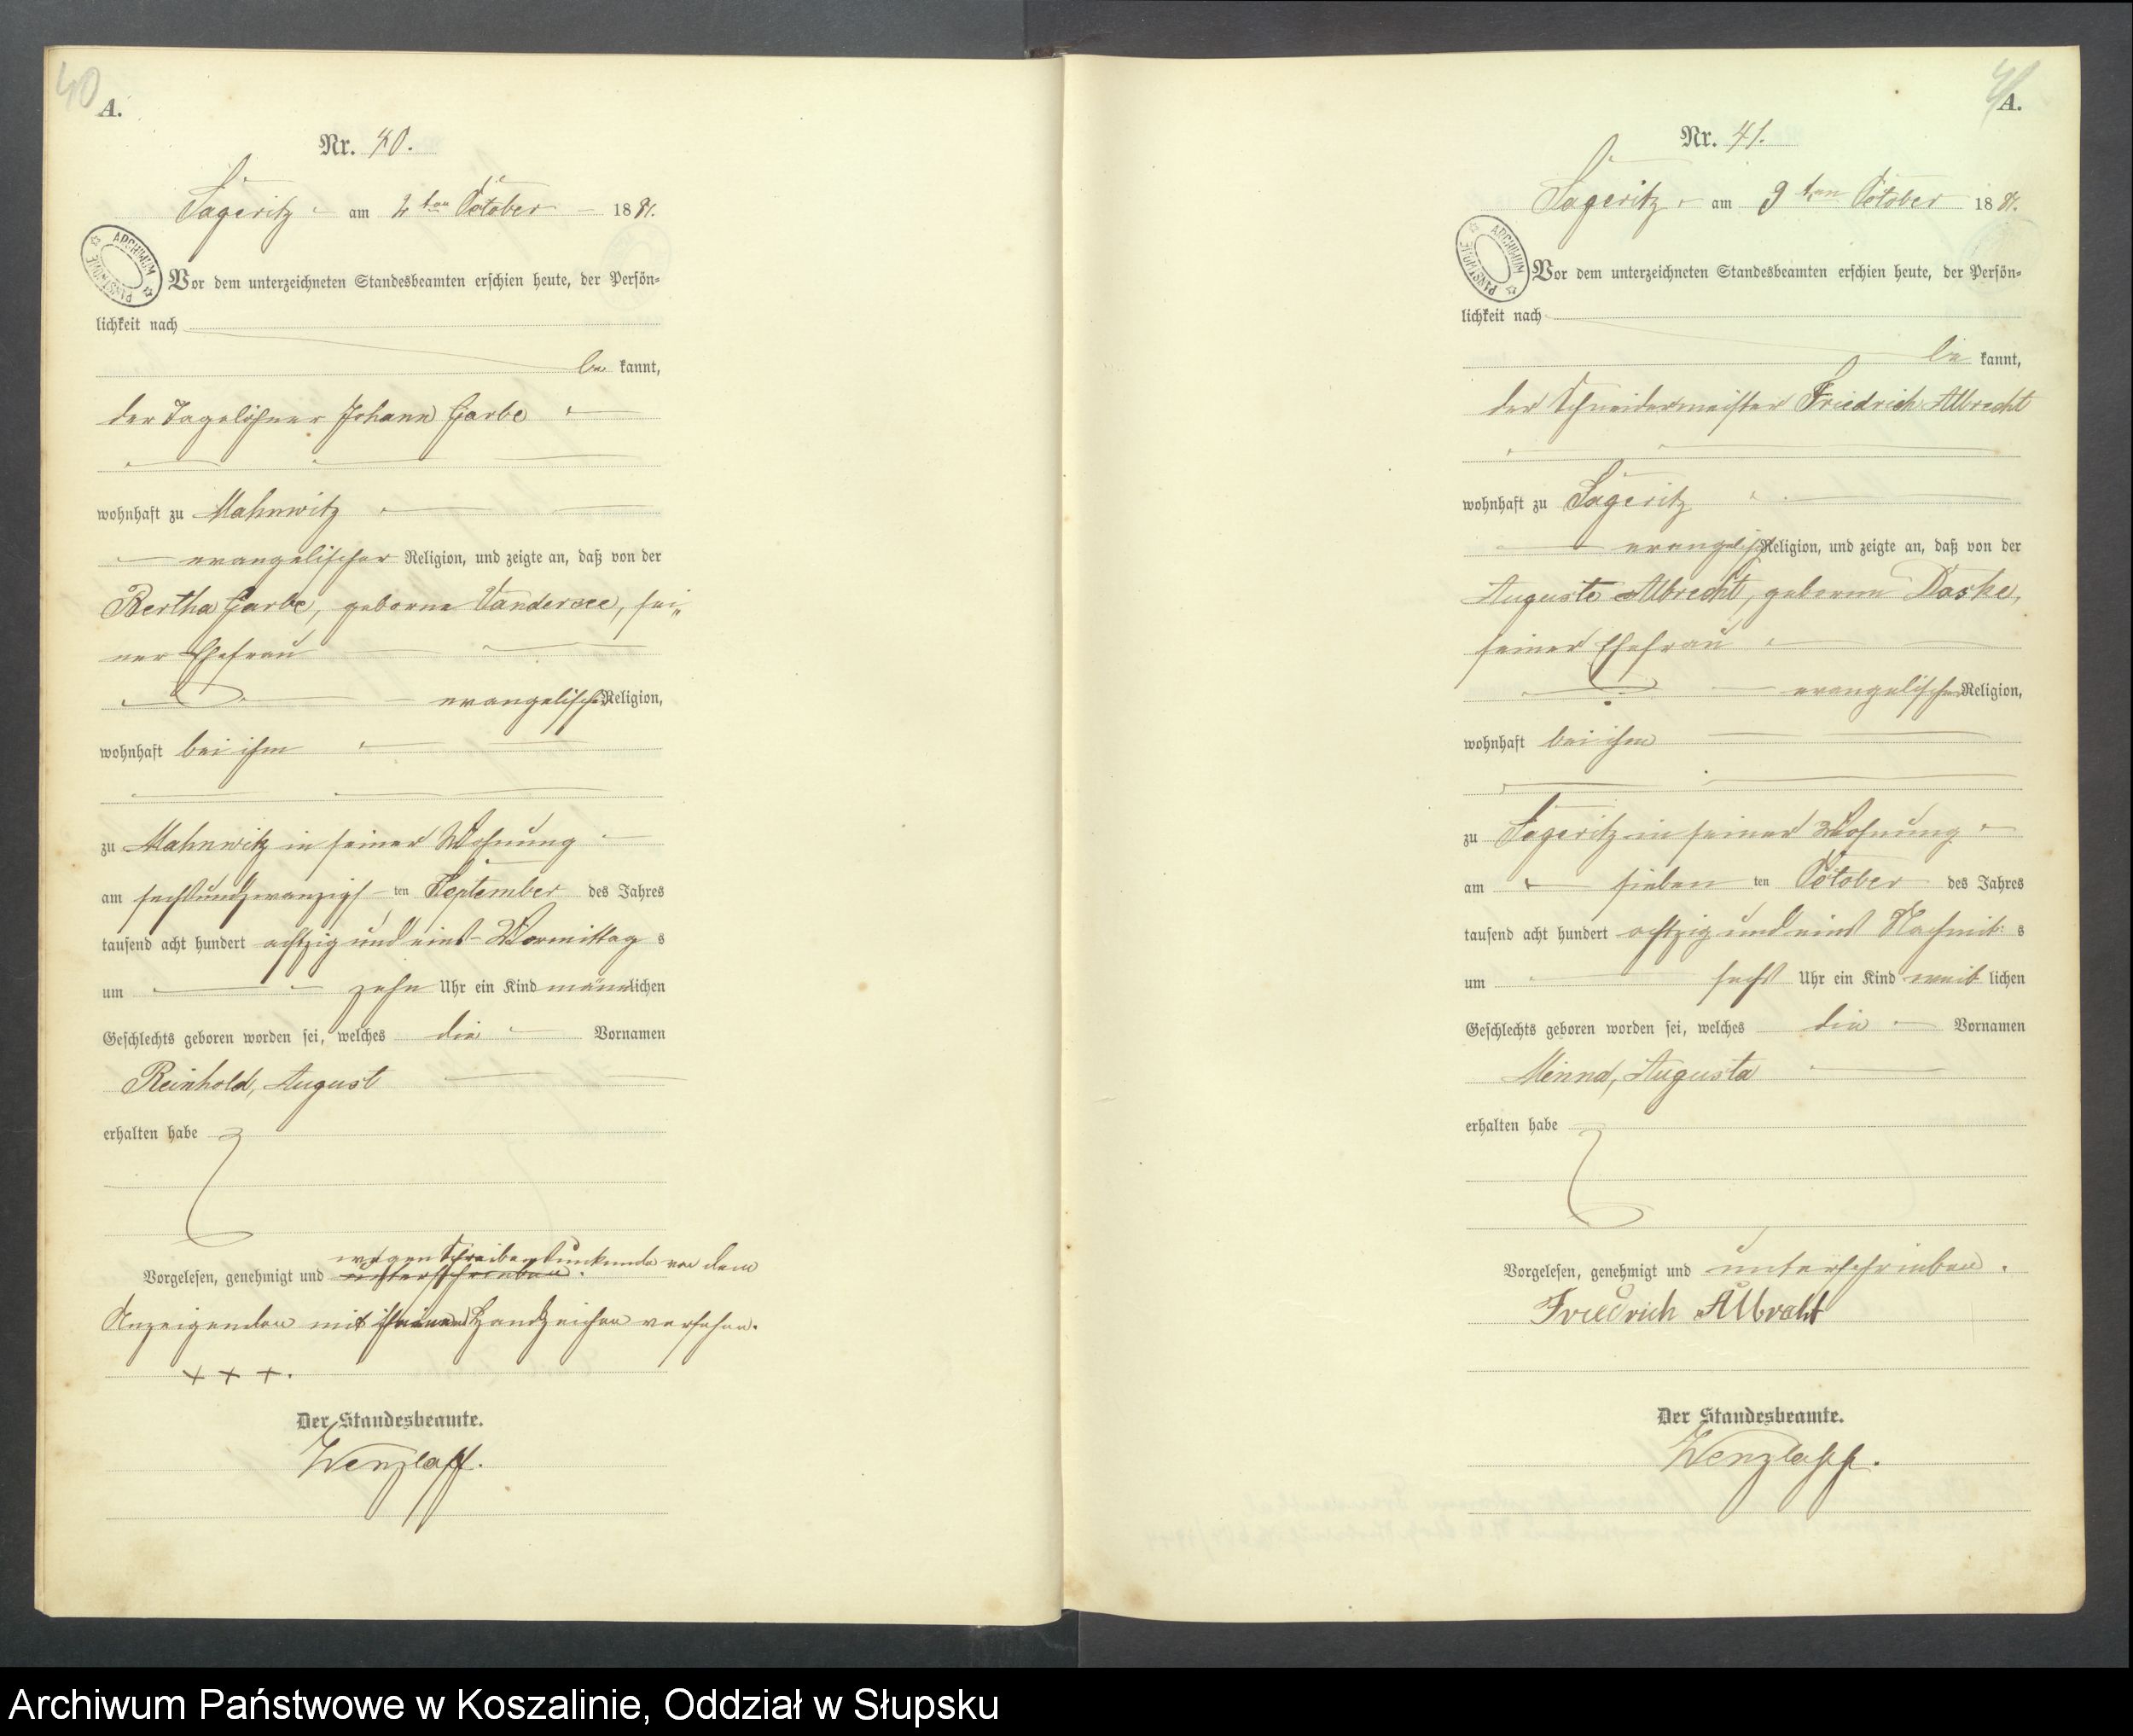 40
A.
Nr. 40.
Sageritz am 2ten October 1881.
ARCHIWUM PAŃSTWOWE
Vor dem unterzeichneten Standesbeamten erschien heute, der Persön-
lichkeit nach
be kannt,
der Tagelöhner Johann Garbe
wohnhaft zu Mahnwitz
evangelischer Religion, und zeigte an, daß von der
Bertha Garbe, geborne Vandersee, sei-
ner Ehefrau
evangelischer Religion,
wohnhaft bei ihm
zu Mahnwitz in seiner Wohnung
am sechsundzwanzigs ten September des Jahres
tausend acht hundert achtzig und eins Vormittag s
um zehn Uhr ein Kind männlichen
Geschlechts geboren worden sei, welches die Vornamen
Reinhold, August
erhalten habe
wegen Schreibensunkunde von dem
Vorgelesen, genehmigt und unterschrieben.
Anzeigenden mit seinem Handzeichen versehen.
+ + +.
Der Standesbeamte.
Wenzlaff.
41
A.
Nr. 41.
Sageritz am 9ten October 1881.
ARCHIWUM PAŃSTWOWE
Vor dem unterzeichneten Standesbeamten erschien heute, der Persön-
lichkeit nach
be kannt,
der Schneidermeister Friedrich Albrecht
wohnhaft zu Sageritz
evangelisch Religion, und zeigte an, daß von der
Auguste Albrecht, geborne Daske,
seiner Ehefrau
evangelischer Religion,
wohnhaft bei ihm
zu Sageritz in seiner Wohnung
am sieben ten October des Jahres
tausend acht hundert achtzig und eins Nachmit: s
um sechs Uhr ein Kind weib lichen
Geschlechts geboren worden sei, welches die Vornamen
Minna, Augusta
erhalten habe
Vorgelesen, genehmigt und unterschrieben.
Friedrich Albrecht
Der Standesbeamte.
Wenzlaff.
Archiwum Państwowe w Koszalinie, Oddział w Słupsku